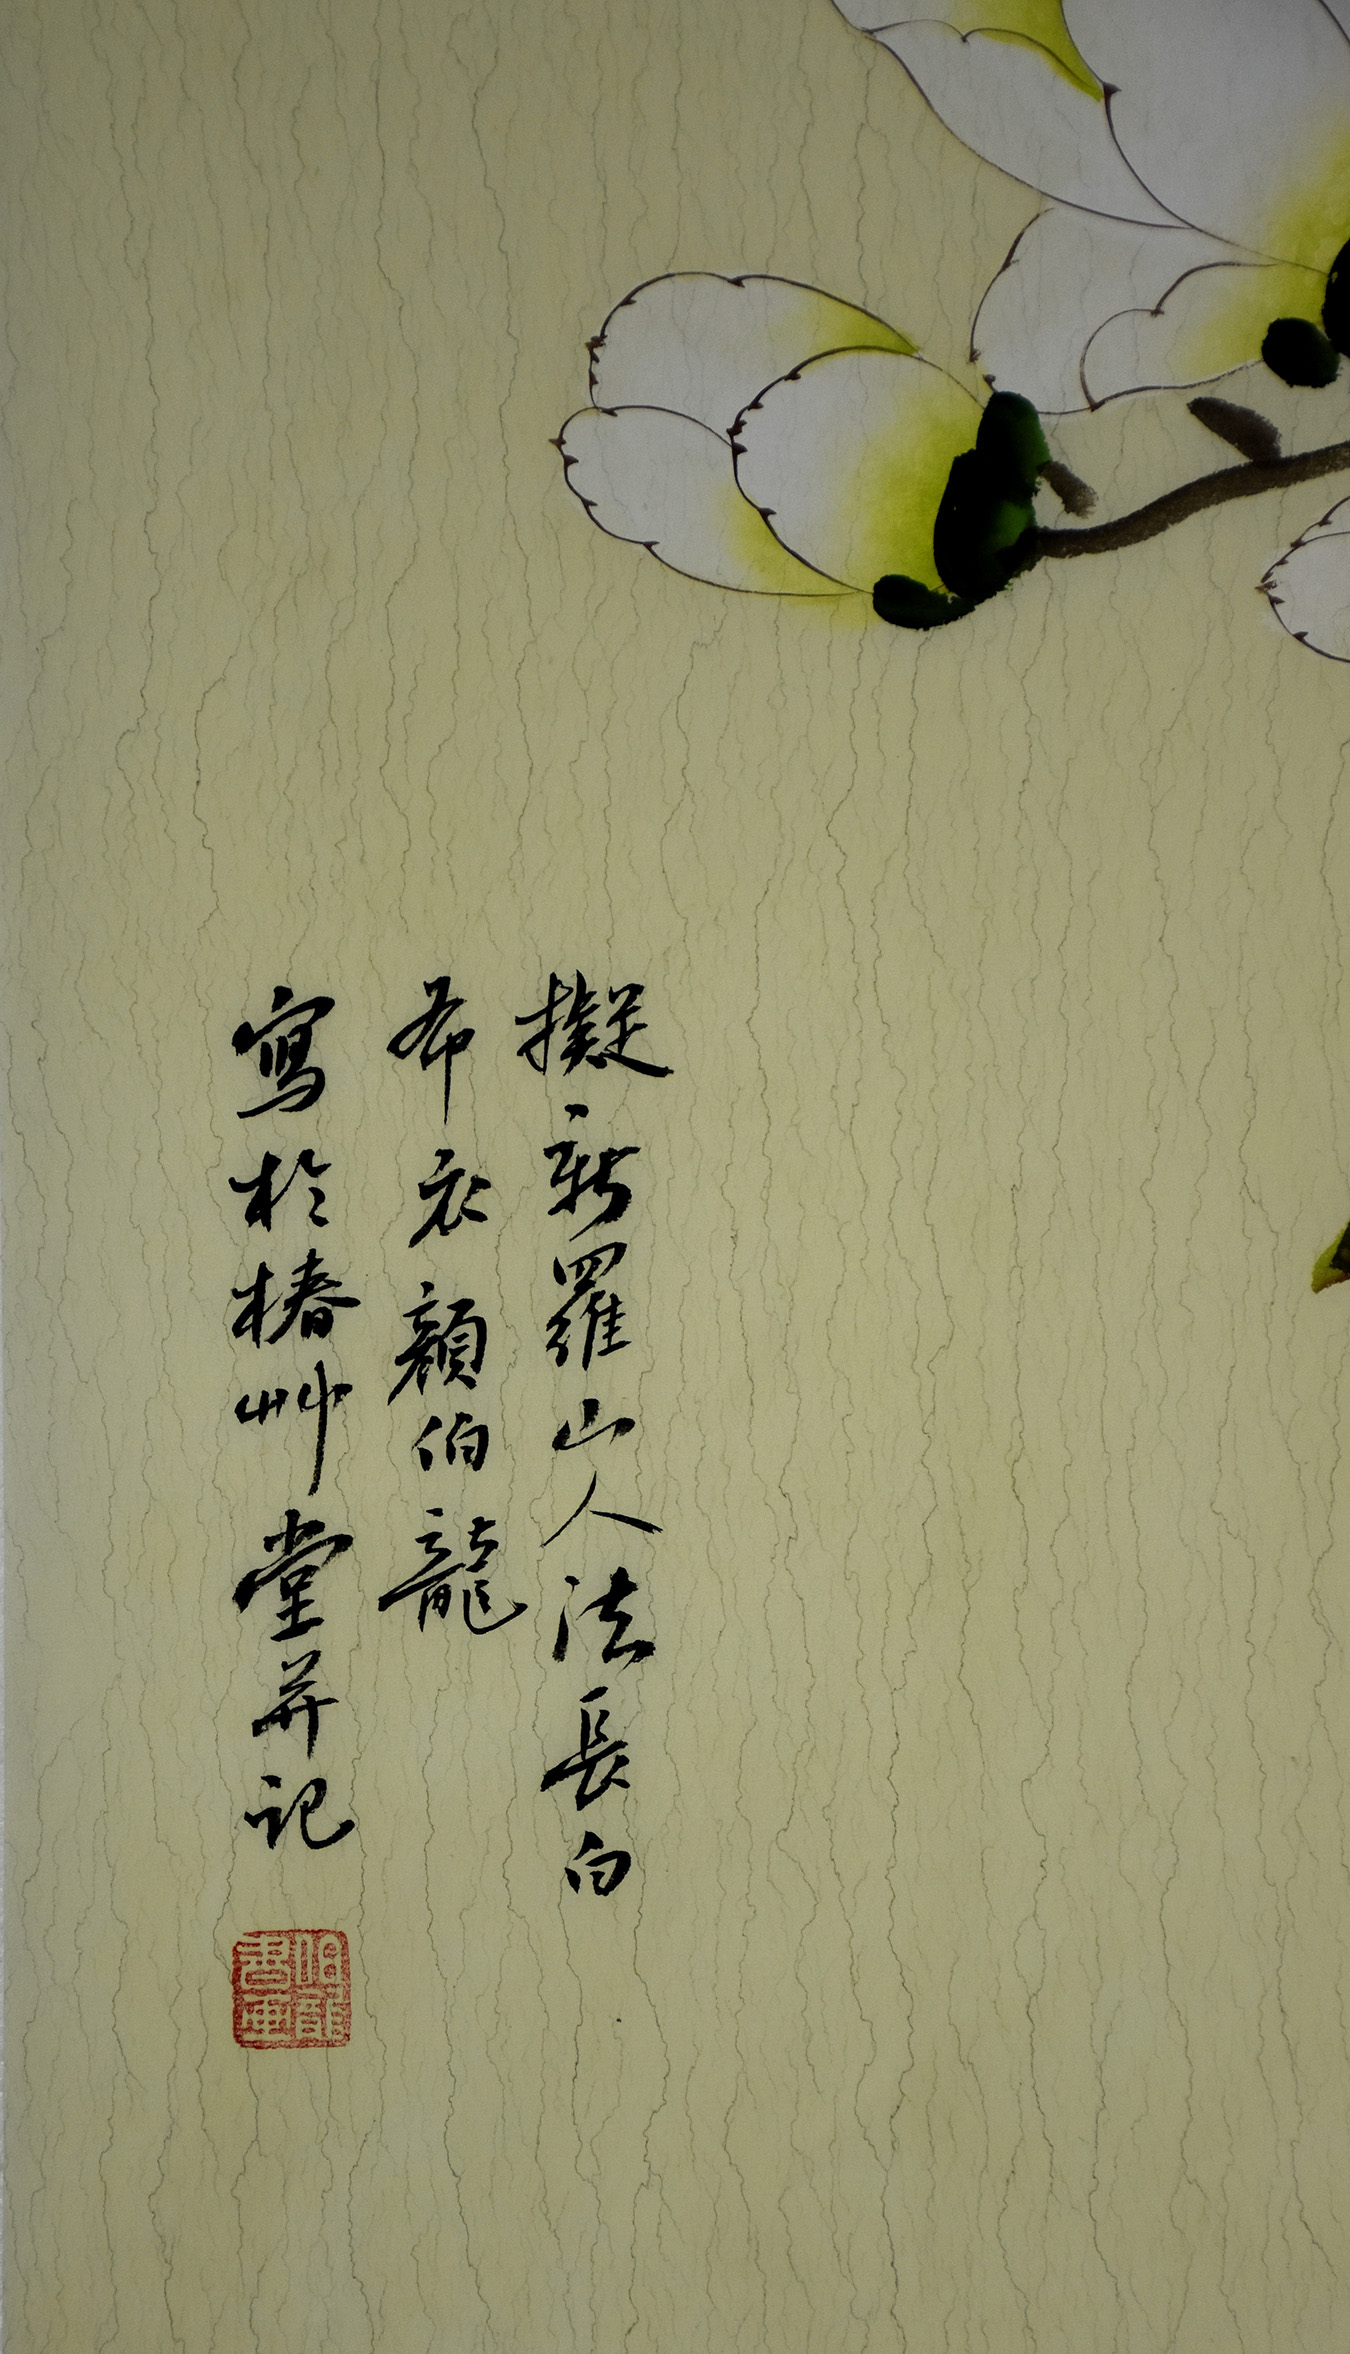 擬新羅山人法長白
布衣顏伯龍
寫於椿艸堂并記
伯龍書畫